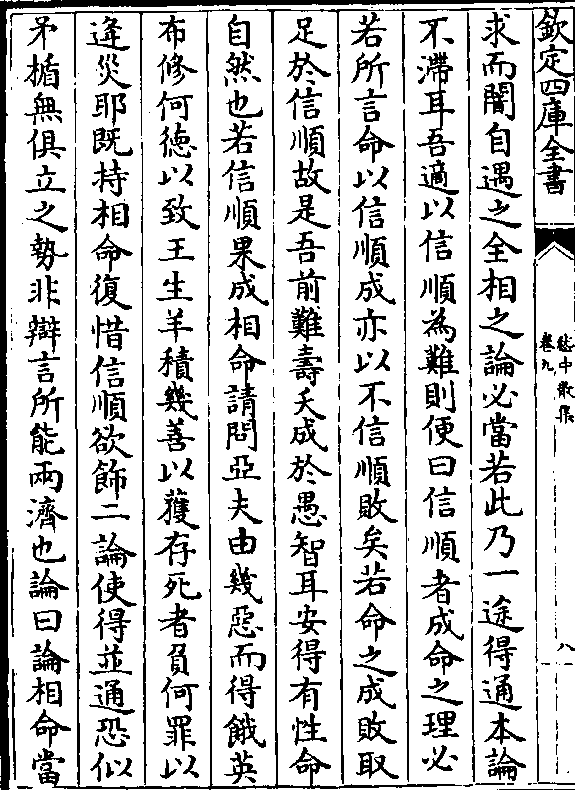 欽定四庫全書
嵇中散集
卷九
八
求而闇自遇之全相之論必當若此乃一途得通本論
不滯耳吾適以信順為難則便曰信順者成命之理必
若所言命以信順成亦以不信順敗矣若命之成敗取
足於信順故是吾前難壽夭成於愚智耳安得有性命
自然也若信順果成相命請問亞夫由幾惡而得餓英
布修何德以致王生羊積幾善以獲存死者負何罪以
逄災耶既持相命復惜信順欲飾二論使得並通恐似
矛楯無俱立之勢非辯言所能兩濟也論曰論相命當